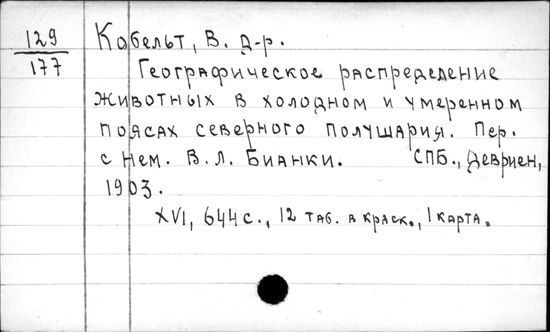 129
177
Кобельт, В. д-р.
Географическое распределение
животных в холодном и умеренном
поясах северного полушария. Пер.
с нем. В. Л. Бианки. СПБ., Девриен,
1903.
XVI, 644 с., 12 таб. в краск., 1 карта.